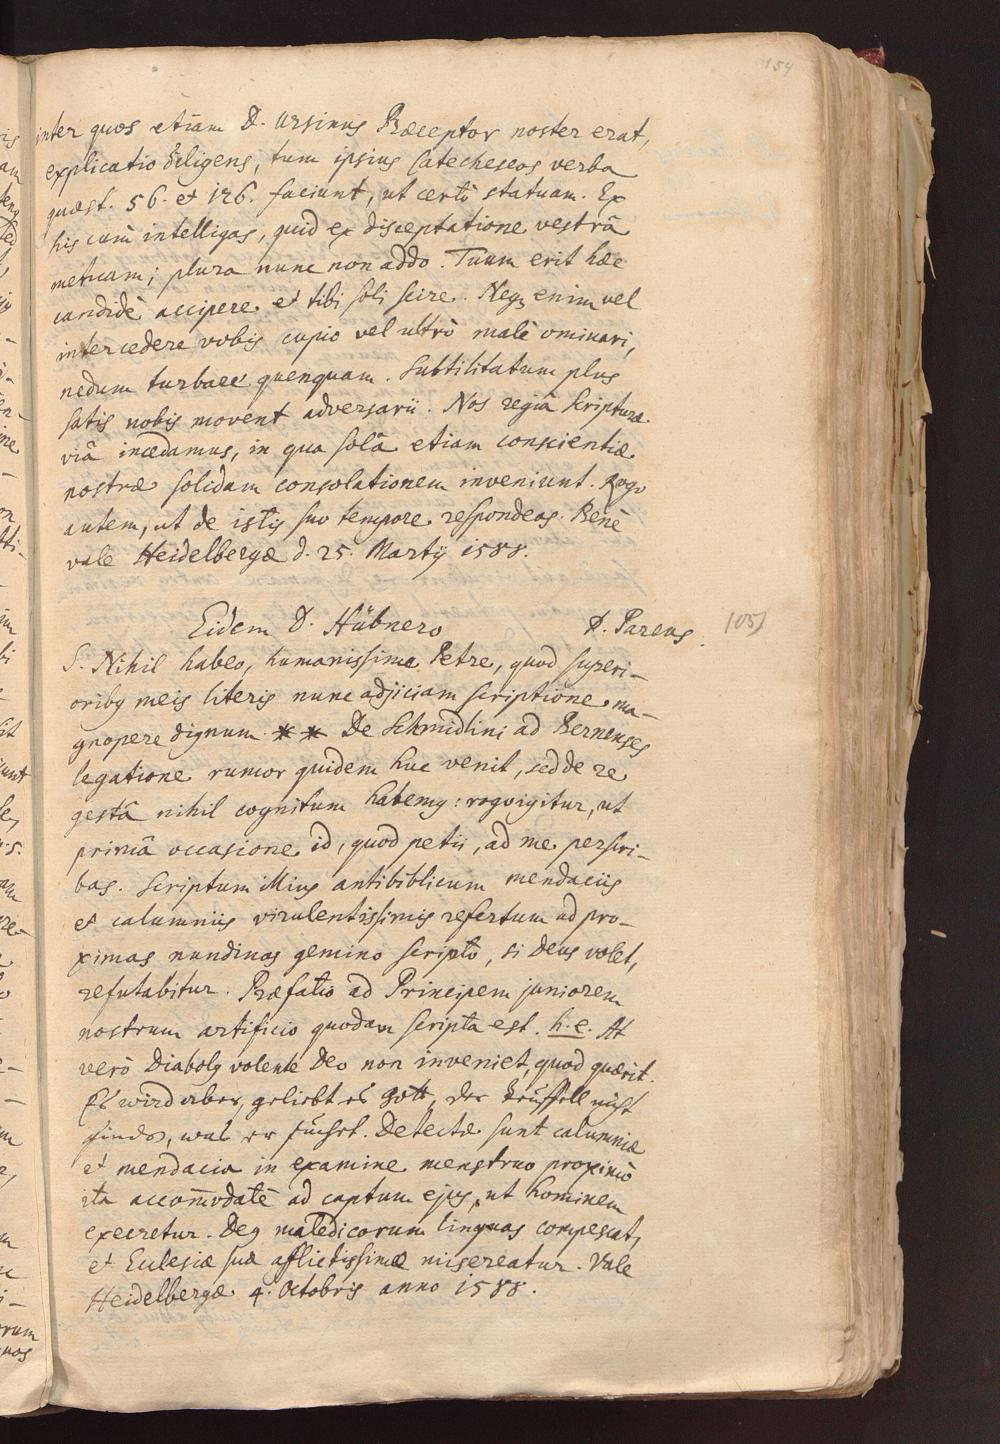 154
inter quos etiam D. Ursinus Præceptor noster erat,
explicatio diligens, tum ipsius Catecheseos verba
quæst. 56. et 126. faciunt, ut certò statuam. Ex
his cum intelligas, quid ex disceptatione vestrâ
metuam; plura nunc non addo. Tuum erit hæc
candidè accipere et tibi soli scire. Neq3 enim vel
intercedere vobis cupio vel ultrò malè ominari,
nedum turbare quenquam. Subtilitatum plus
satis nobis movent adversarii. Nos regiâ Scripturæ
viâ incedamus, in qua solâ etiam conscientiæ
nostræ solidam consolationem inveniunt. Rogo
autem, ut de istis suo tempore respondeas. Benè
vale Heidelbergæ d. 25. Martij 1588.
Eidem D. Hübnero D. Pareus. 105)
S. Nihil habeo, humanissime Petre, quod superi-
oribg meis literis nunc adjiciam scriptione ma-
gnopere dignum. ** De Schmidlini ad Bernenses
legatione rumor quidem huc venit, sed de re
gestâ nihil cognitum habemg: rogo igitur, ut
primâ occasione id, quod petii, ad me perscri-
bas. Scriptum illius antibiblicum mendaciis
et calumniis virulentissimis refertum ad pro-
ximas nundinas gemino scripto, si Deus volet,
refutabitur. Præfatio ad Principem juniorem
nostrum artificio quodam scripta est. h. e. At
verò Diabolg volente Deo non inveniet, quod quærit.
Es wird aber, geliebt es Gott, der Teuffell nicht
finden, was er sucht. Detectæ sunt calumniæ
et mendacia in examine menstruo proximo
ita accom̄odatè ad captum ejus, ut hominem
execretur. Deg maledicorum linguas compescat,
et Ecclesiæ suæ afflictissimæ misereatur. Vale
Heidelbergæ 4. Octobris anno 1588.